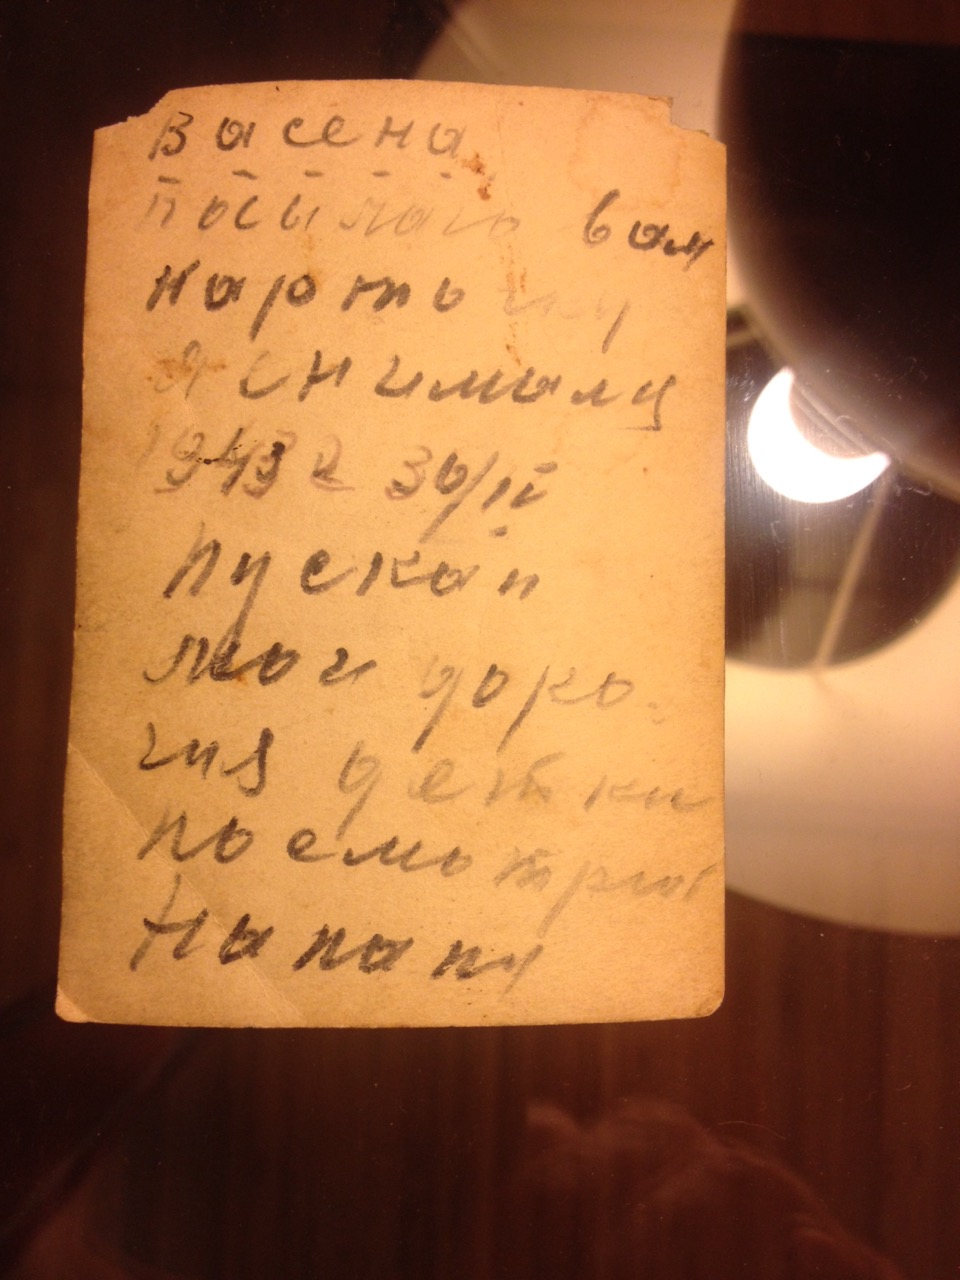 Васена
посылаю вам
карточку
я снималц
1943 г 30/II
пускай
мои доро-
гия детки
посмотрют
на папу